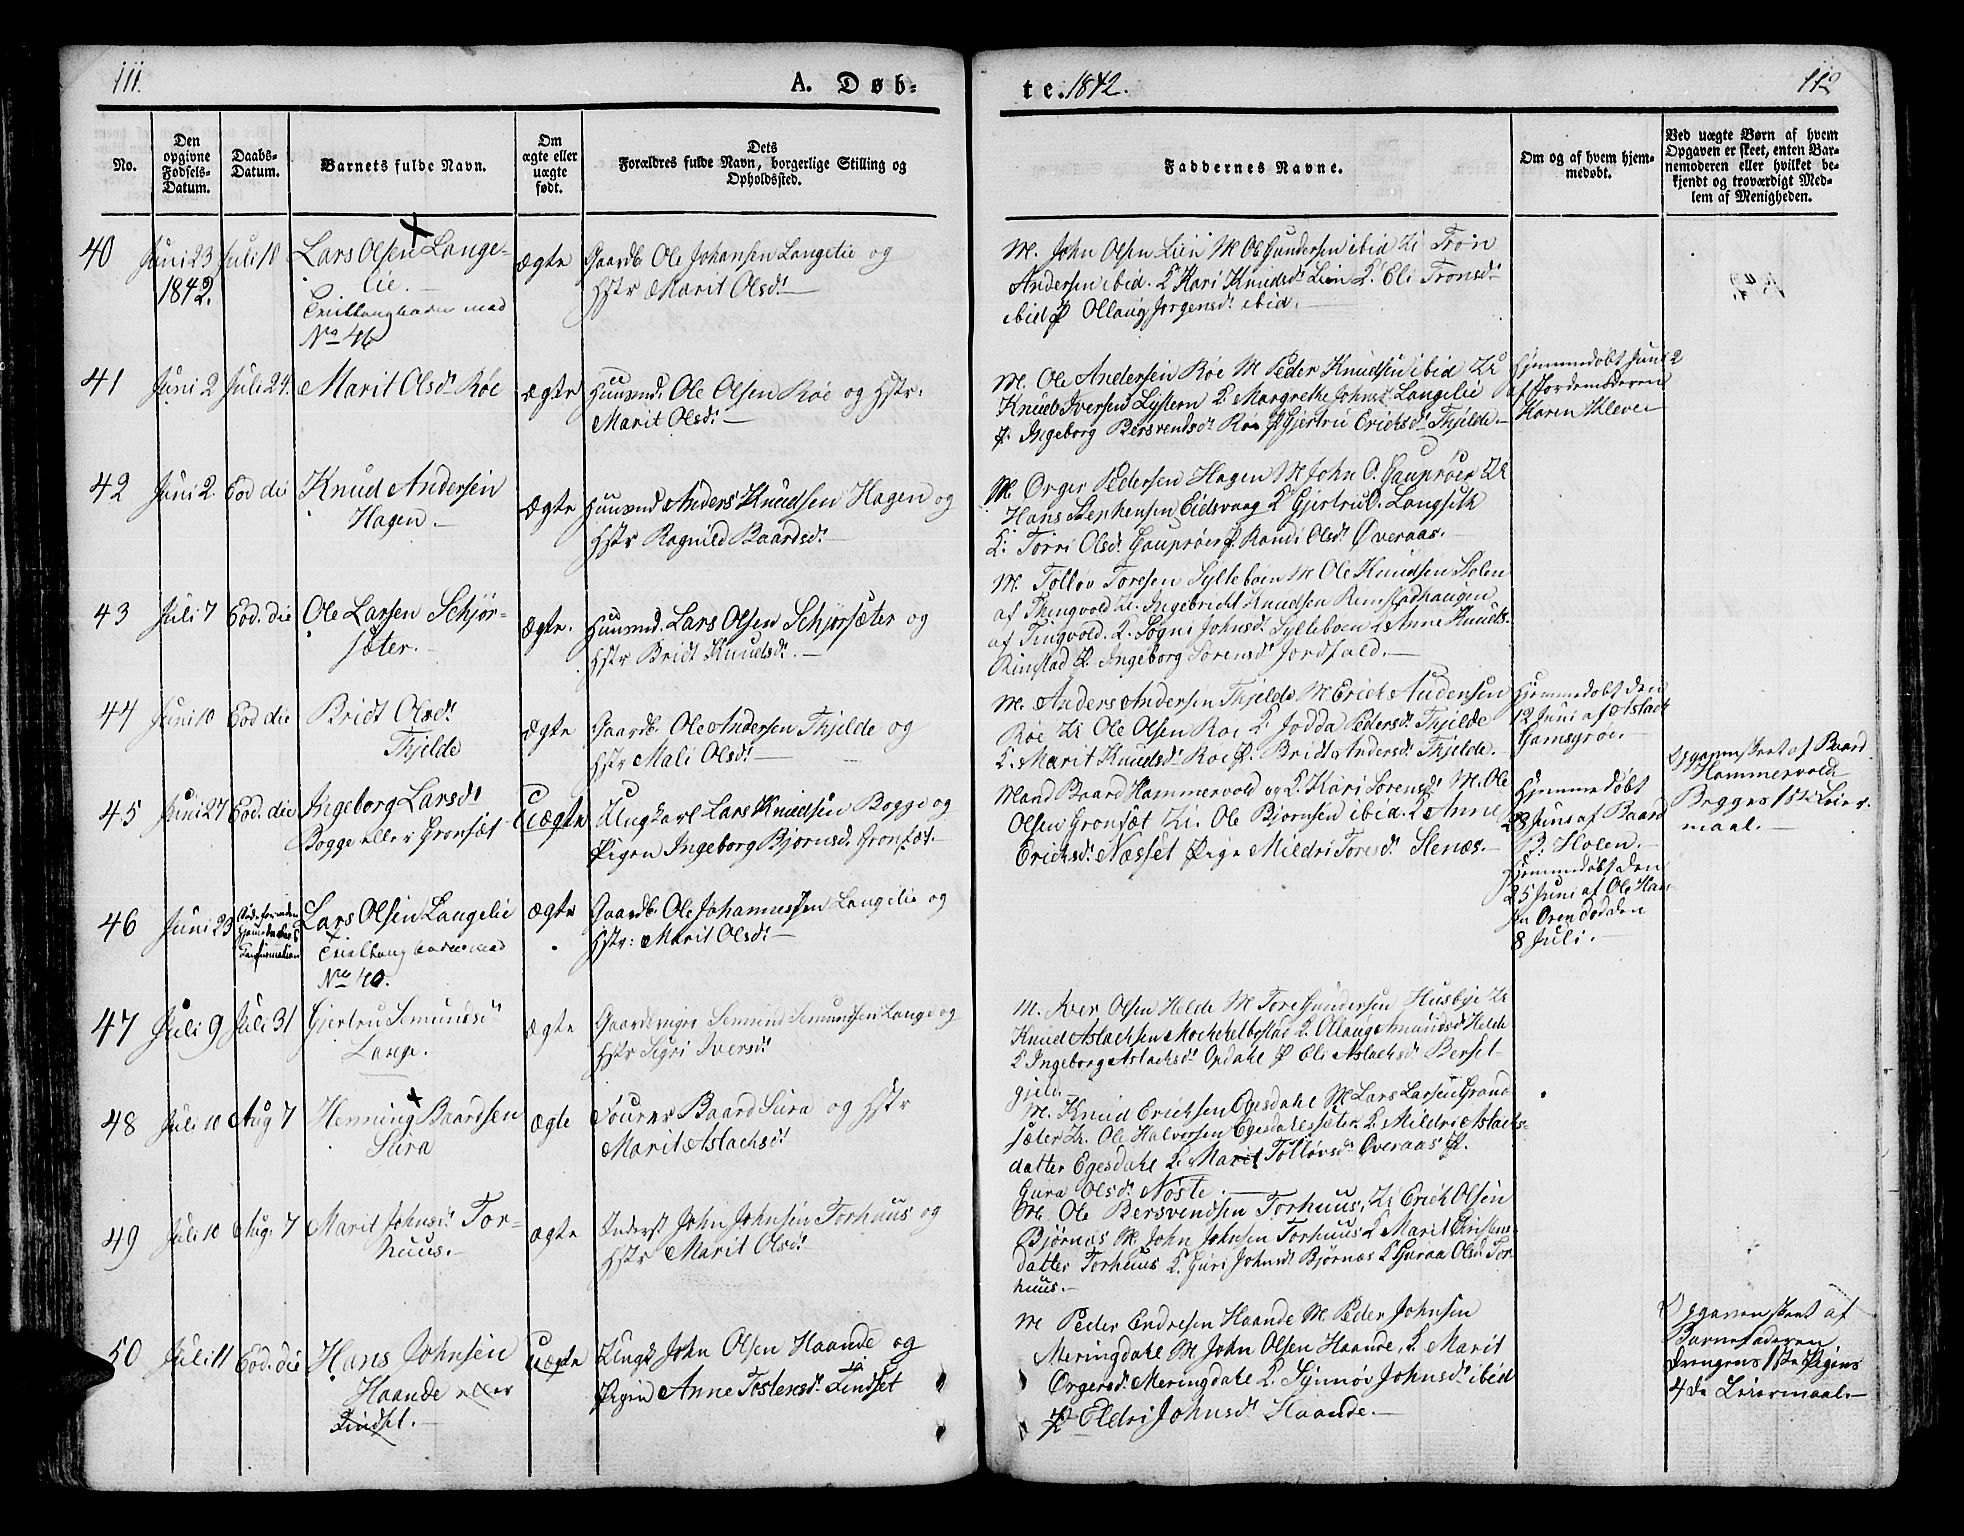 111.
A. Døb-
te. 1842.
112
No.
Den opgivne Fødsels-Datum.
Daabs-Datum.
Barnets fulde Navn.
Om ægte eller uægte født.
Dets
Forældres fulde Navn, borgerlige Stilling og
Opholdssted.
Faddernes Navne.
Om og af hvem hjem-
medøbt.
Ved uægte Børn af hvem
Opgaven er skeet, enten Bar-
nemoderen eller hvilket be-
kjendt og troværdigt Med-
lem af Menigheden.
40 Juni 23 Juli 10 Lars Olsen Lange- ægte Gaardb. Ole Johansen Langelie og
1842. lie. Hstr Marit Olsd.
Tvillingbarn med
No 46
M. John Olsen Lien M Ole Gundersen ibid U. Tron
Andersen ibid. K Kari Knudsd. Lien K. Eli Tronsd.
ibid P Ollaug Jørgensd. ibid.
41 Juni 2 Juli 24. Marit Olsd. Røe ægte Huusmd. Ole Olsen Røe og Hstr:
Marit Olsd.
M. Ole Andersen Røe M Peder Knudsen ibid U
Knud Iversen K. Margrethe Johnsd. Langelie
P. Ingeborg Bersvendsd. Røe P Gjertru Ericksd. Thjelde.
Hjemmedøbt Juni 2
af Jordemoderen
Karen Kleve
42 Juni 2 Eod die Knud Andersen ægte Huusmd Anders Knudsen Hagen og
Hagen. Hstr Ragnild Baardsd.
M. Orger Pedersen Hagen M John O. Gauprøer U
Hans Stenhensen Eidsvaag K Gjertru O. Langseth
K. Torri Olsd. Gauprøer P. Randi Olsd. Øveraas.
43 Juli 7 Eod. die Ole Larsen Schjør- ægte. Huusmd. Lars Olsen Schjørsæter og
sæter. Hstr Bridt Knudsd.
M. Tolløv Toresen Sylteboen M Ole Knudsen Stolen
af Thingvold U. Ingebricht Knudsen Rimstadhaugen
af Tingvold. K. Sogni Johnsd. Sylteboen K Anne Knudsd.
Rimstad P. Ingeborg Sørensd. Jordfald.
44 Juni 10 Eod die Bridt Olsd. ægte Gaardb. Ole Andersen Thjelde og
Thjelde Hstr Mali Olsd.
M. Anders Andersen Thjelde M Erich Andersen
Røe U Ole Olsen Røe K. Jodda Pedersd. Thjelde
K. Marit Knudsd. Røe P. Bridt Andersd. Thjelde.
Hjemmedøbt den
12 Juni af Aslad
45 Juni 27 Eod. die Ingeborg Larsd. Uægte Ungkarl Lars Knudsen Bogge og
Bogge eller Gronsæt Pigen Ingeborg Bjørnsd. Gronsæt.
Mand Baard Hammervold og K. Kari Sørensd. M. Ole
Olsen Gronsæt U. Ole Bjørnsen ibid. K Anne
Ericksd. Næsset Pige Mildri Toresd. Stenæs.
Hjemmedøbt
28 Juni af Baard
B. Holen.
Opgaven skeet af Baard
Hammervold
Begges 1ste Leier-
maal.
46 Juni 23 Død forinden Hjemmedaabs Confirmation Lars Olsen Langelie ægte Gaardb. Ole Johannessen Langelie og
Tvillingbarn med Hstr: Marit Olsd.
No 40.
Hjemmedøbt den
25 Juni af Ole Han-
sen Øren død den
8 Juli.
47 Juli 9 Juli 31 Gjertru Semundsd. ægte Semund Semundsen Lange og
Lange. Hstr Sigri Iversd.
M. Iver Olsen Helde M Tore Gundersen Husbye U
Knud Aslachsen Mochelbostad K. Ollaug Amundsd. Helde
K Ingeborg Aslachsd. Opdahl P Eli Aslachsd. Berset-
gjeld.
48 Juli 10 Aug 7 Henning Baardsen ægte Baard Sira og Hstr
Sira Marit Aslachsd.
M. Knud Ericksen Egesdahl M Lars Larsen Grand
sæter U. Ole Halvorsen Egesdalssæter K. Mildri Aslachs-
datter Egesdahl K. Marit Tolløvsd. Øveraas P.
Gura Olsd. Nøste.
49 Juli 10 Aug. 7 Marit Johnsd. Tor- ægte Inderst John Johnsen Torhuus og
huus. Hstr Marit Olsd.
M. Ole Bersvendsen Torhuus, U. Erich Olsen
Bjørnæs M. John Johnsen Torhuus K Marit Christens-
datter Torhuus K. Guri Johnsd. Bjørnæs K Guraa Olsd. Tor-
huus.
50 Juli 11 Eod. die Hans Johnsen Uægte Ungk John Olsen Haande og
Haande eller Pigen Anne Tostensd. Lindset
Lindset.
M Peder Endresen Haande M. Peder Johnsen
Meringdahl M. John Olsen Haande, K. Marit
Orgersd. Meringdahl K. Synnøv Johnsd. ibid
P Eldri Johnsd. Haande.
Opgaven skeet af
Barnefaderen
Drengens 1ste Pigens
4de Leiermaal.